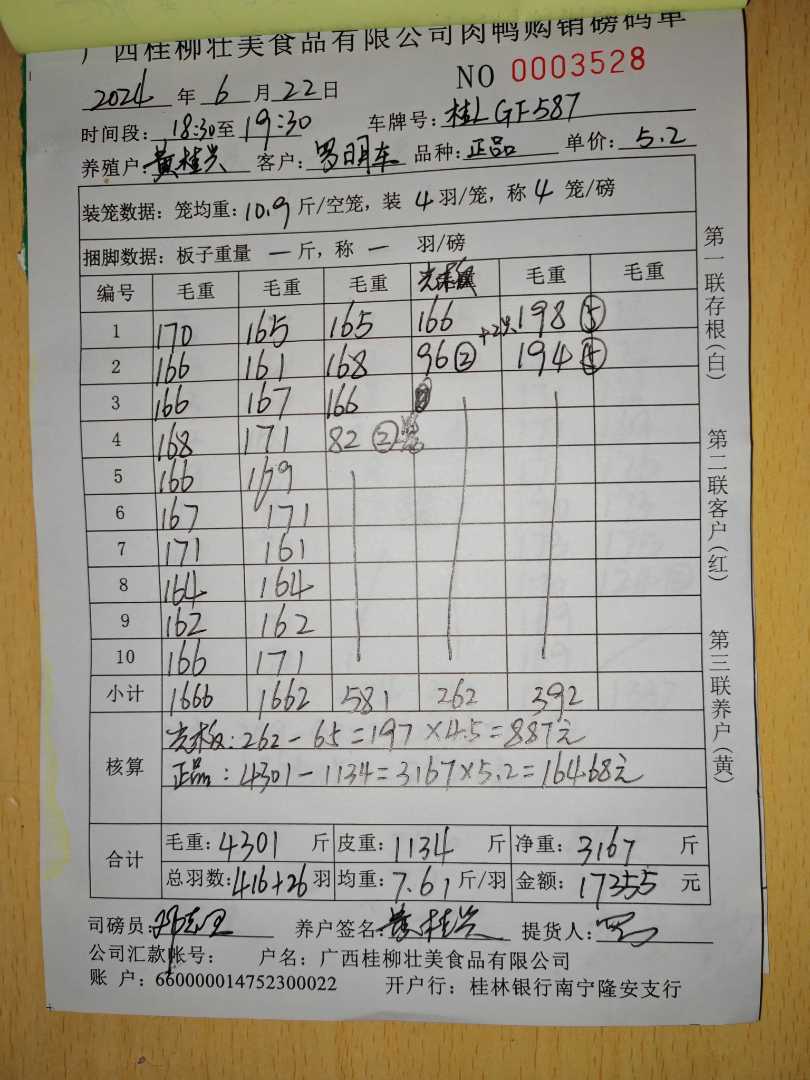 广西桂柳壮美食品有限公司肉鸭购销磅码单
NO 0003528
2024 年 6 月 22 日
时间段: 18:30 至 19:30 车牌号: 桂L GF587
养殖户: 黄桂兴 客户: 罗明车 品种: 正品 单价: 5.2
装笼数据: 笼均重: 10.9 斤/空笼, 装 4 羽/笼, 称 4 笼/磅
捆脚数据: 板子重量 一 斤, 称 一 羽/磅
编号 毛重 毛重 毛重 毛重 毛重
1 170 165 165 166 198 ⑤
2 166 161 168 96 ② 194 ⑤
3 166 167 166
4 168 171 82 ②
5 166 169
6 167 171
7 171 161
8 164 164
9 162 162
10 166 171
小计 1666 1662 581 262 392
核算
光板: 262 - 65 = 197 × 4.5 = 887元
正品: 4301 - 1134 = 3167 × 5.2 = 16468元
合计
毛重: 4301 斤 皮重: 1134 斤 净重: 3167 斤
总羽数: 416+26 羽 均重: 7.61 斤/羽 金额: 17355 元
司磅员: 养户签名: 黄桂兴 提货人:
公司汇款账号: 户名: 广西桂柳壮美食品有限公司
账 户: 660000014752300022 开户行: 桂林银行南宁隆安支行
第一联存根(白)
第二联客户(红)
第三联养户(黄)